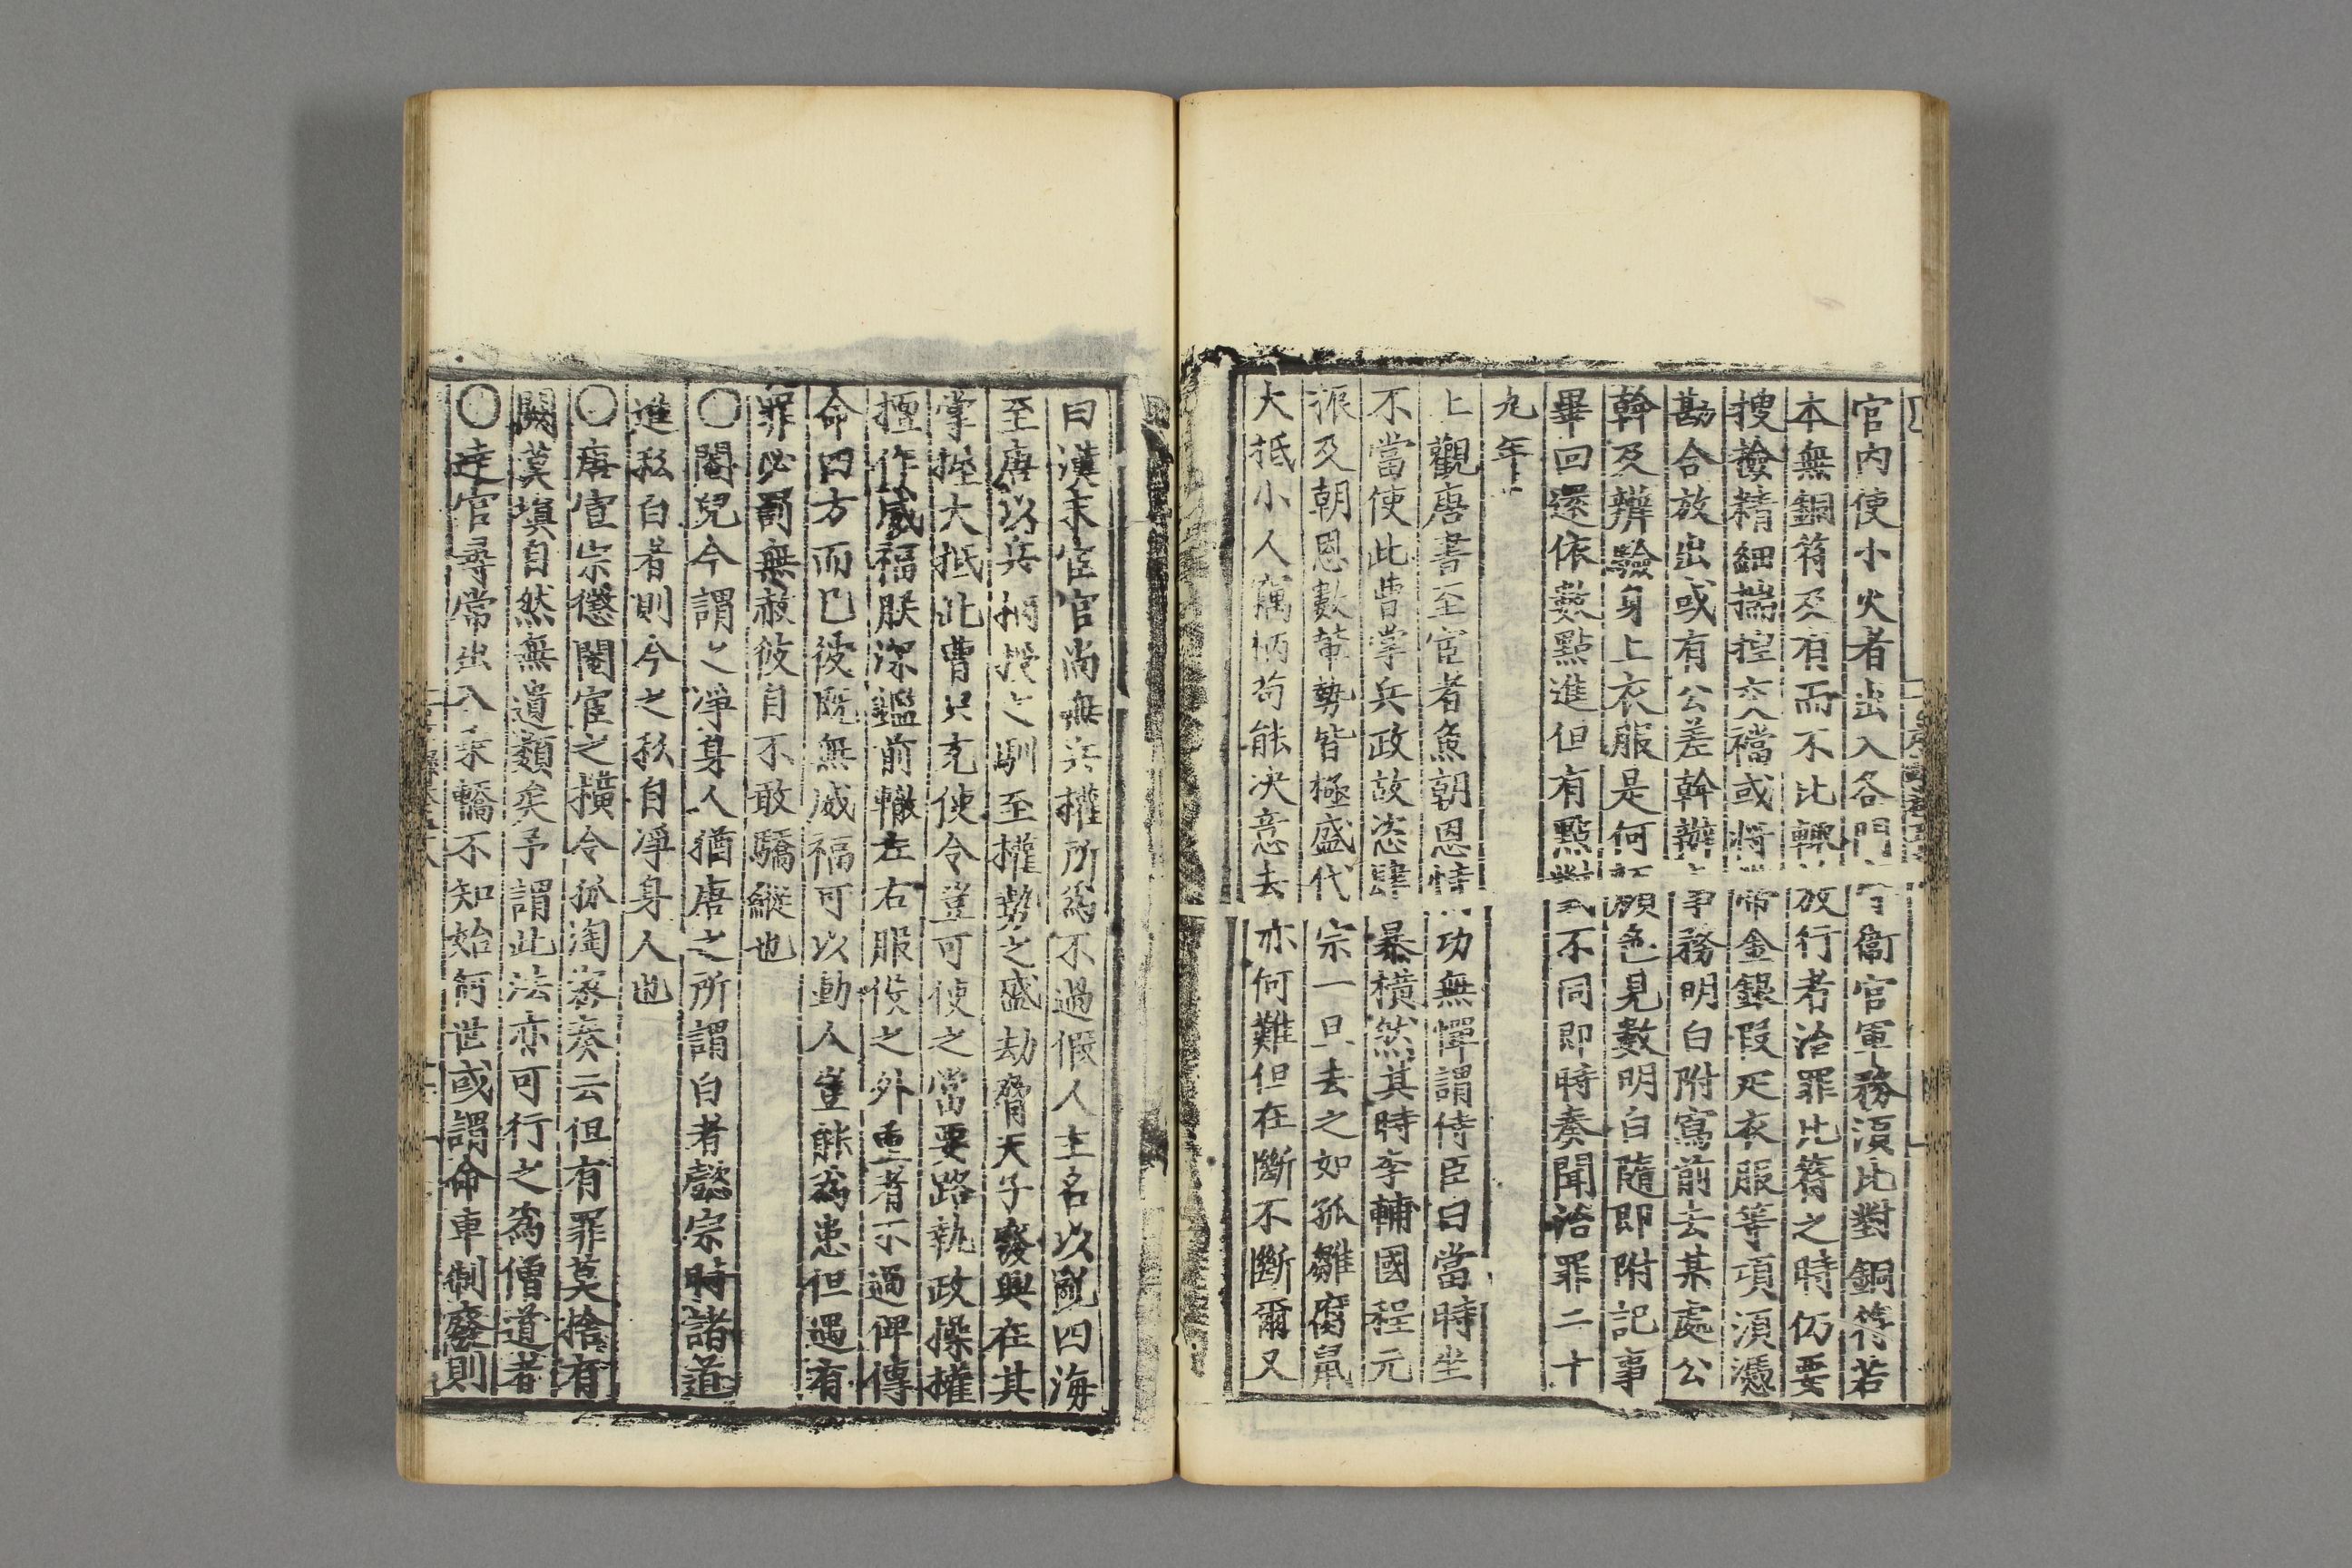 官內使小火者出入各門守衞官軍務湏比對銅符若
本無銅符及有而不比輙放行者治罪比符之時仍要
搜檢精細揣控交襠或將帶金銀叚疋衣服等項湏憑
勘合放出或有公差幹辦事務明白附寫前去某處公
幹及辨驗身上衣服是何顔色見數明白隨即附記事
畢回還依數點進但有點對不同即時奏聞治罪二十
九年
上觀唐書至宦者魚朝恩恃功無憚謂侍臣曰當時坐
不當使此曹掌兵政故恣肆暴橫然其時李輔國程元
振及朝恩數輩勢皆極盛代宗一旦去之如孤雛腐鼠
大抵小人竊柄苟能决意去亦何難但在斷不斷爾又
曰漢末宦官尚無兵權所爲不過假人主名以亂四海
至唐以兵柄授之馴至權勢之盛劫脅天子發興在其
掌握大抵此曹只充使令豈可使之當要路執政操權
擅作威福朕深鑑前轍左右服役之外重者不過俾傳
命四方而已彼旣無威福可以動人豈能爲患但遇有
罪必罰無赦彼自不敢驕縱也
〇閹兒今謂之淨身人猶唐之所謂白者懿宗時諸道
進私白者則今之私自淨身人也
〇唐宣宗懲閹宦之橫令狐淘密奏云但有罪莫捨有
闕莫塡自然無遺類矣予謂此法亦可行之爲僧道者
〇達官尋常出入乘轎不知始何世或謂命車制廢則